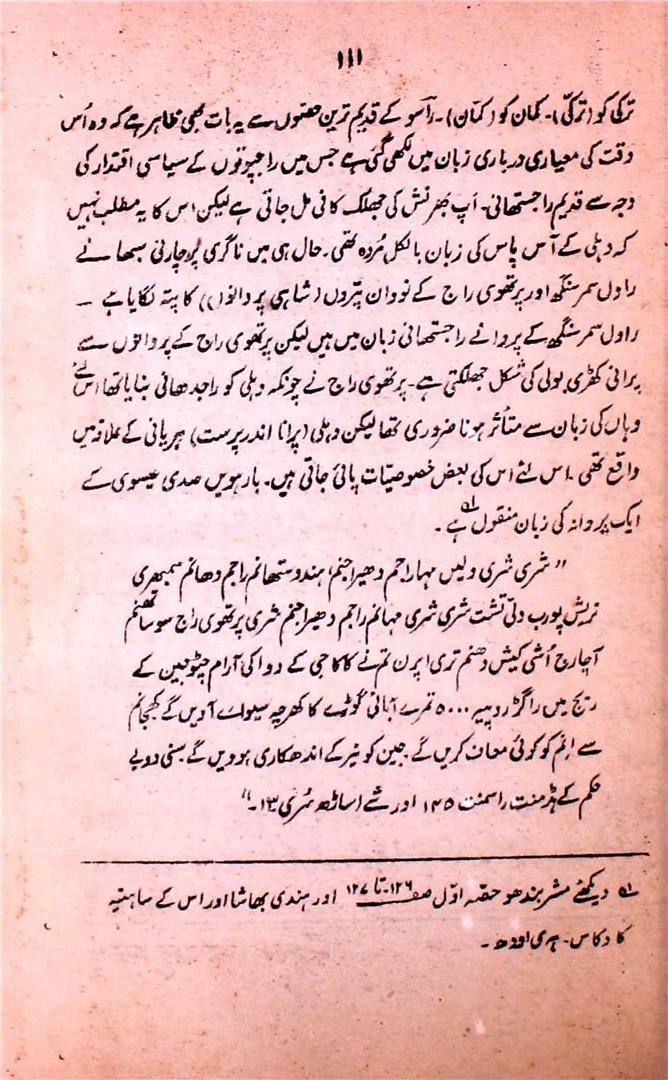 ۱۱۱
ترکی کو (ترکّی)۔ کمان کو (کمّان)۔ راسو کے قدیم ترین حصّوں سے یہ بات بھی ظاہر ہے کہ وہ اُس
وقت کی معیاری درباری زبان میں لکھی گئی ہے جس میں راجپوتوں کے سیاسی اقتدار کی
وجہ سے قدیم راجستھانی۔ اَپ بھرنش کی جھلک کافی مل جاتی ہے لیکن اس کا یہ مطلب نہیں
کہ دہلی کے آس پاس کی زبان بالکل مُردہ تھی۔ حال ہی میں ناگری پرچارنی سبھا نے
راول سمر سنگھ اور پرتھوی راج کے نو دان پتّروں (شاہی پروانوں) کا پتہ لگایا ہے ۔
راول سمر سنگھ کے پروانے راجستھانی زبان میں ہیں لیکن پرتھوی راج کے پروانوں سے
پرانی کھڑی بولی کی شکل جھلکتی ہے۔ پرتھوی راج نے چونکہ دہلی کو راجدھانی بنایا تھا اس لئے
وہاں کی زبان سے متأثر ہونا ضروری تھا لیکن دہلی (پرانا اندرپرست) ہریانی کے علاقہ میں
واقع تھی۔ اس لئے اس کی بعض خصوصیات پائی جاتی ہیں۔ بارہویں صدی عیسوی کے
ایک پروانہ کی زبان منقول ہے۔
"شری شری ولیں مہاراجم دھیراجنم، ہندوستھانم راجم دھانم سمبھری
نریش پورب دلّی تشت شری شری مہانم راجم دھیراجنم شری پرتھوی راج سوساتھنم
آچارج اُشی کیش دھنم تری اپرن تم نے کاکا جی کے دوا کی آرام چئو جین کے
ریج میں راگڑ روپیہ ۵۰۰۰ تمرے آہاتی گوڑے کا کھرچہ سیوائے آویں گے کھجانم
سے اِنم کو کوئی معاف کریں گے جین کو نیر کے اندھکاری ہوویں گے سنی دوبے
حکم کے ہڈمنت راسمنت ۱۱۴۵ اور شے اساڑھ سُری ۱۳۔"
لہ دیکھئے مشر بندھو حصّہ اوّل صفحہ ۱۲۶ تا ۱۲۷ اور ہندی بھاشا اور اس کے ساہتیہ
کا وکاس۔ ہری اودھ۔